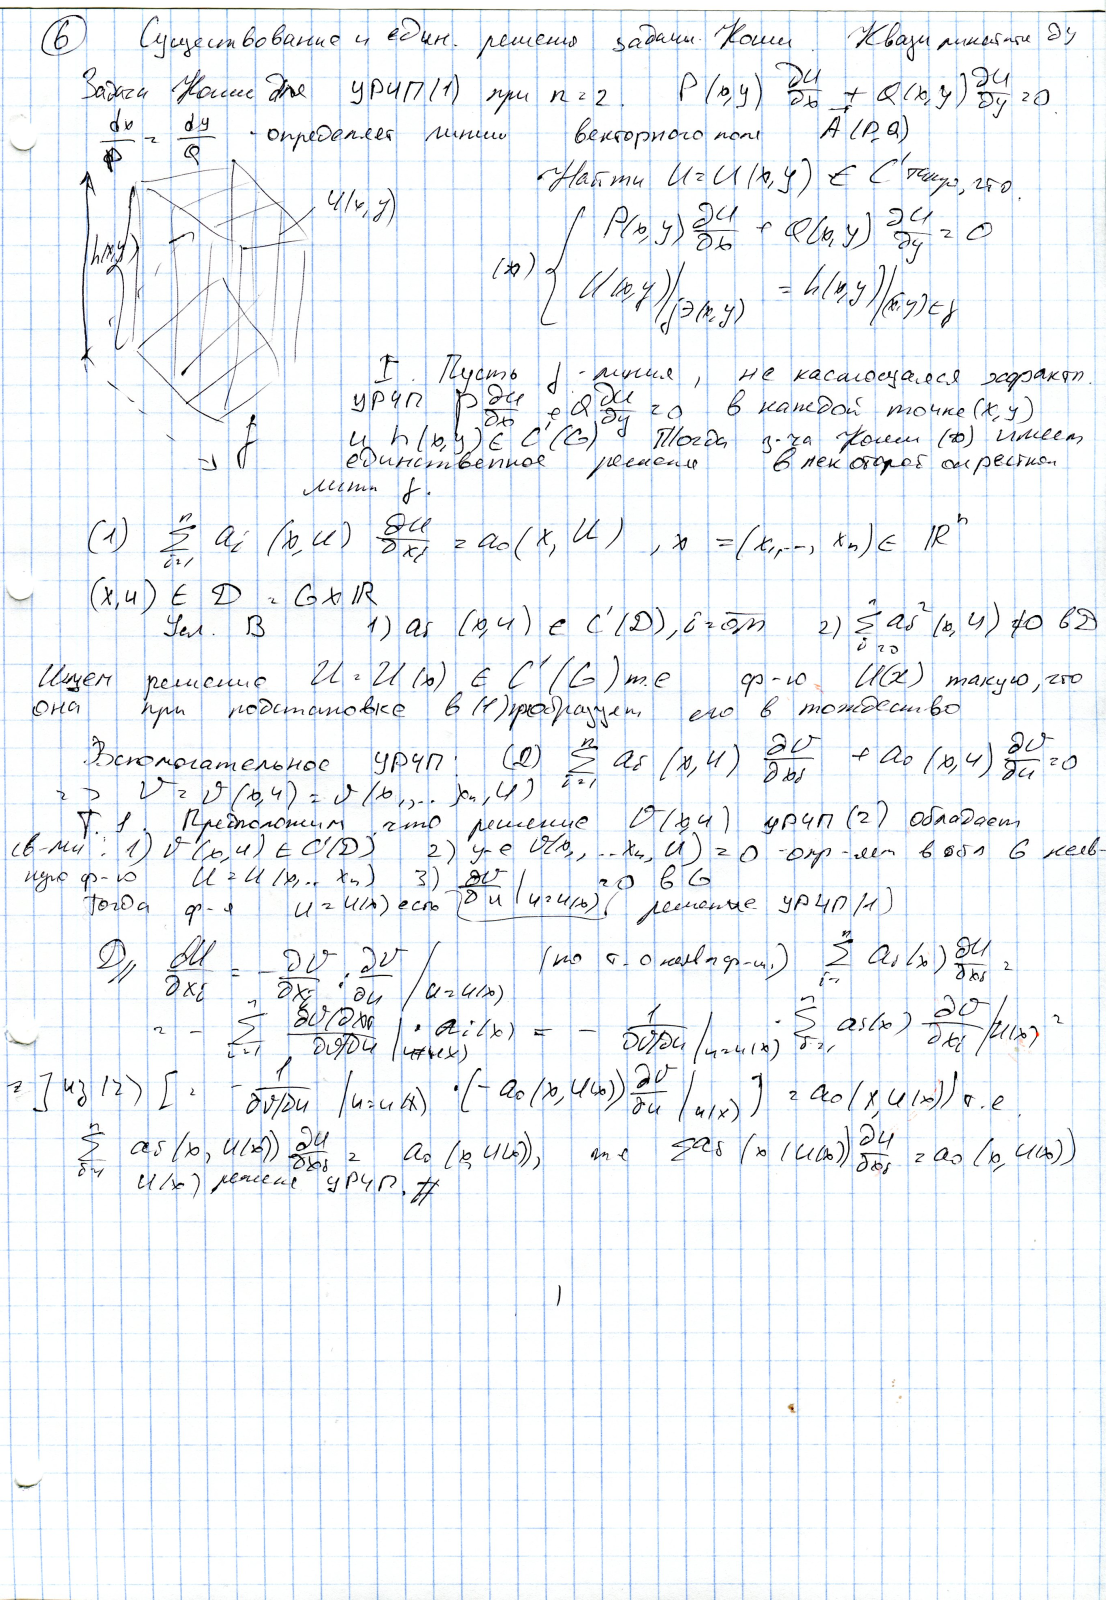 6 Существование и един. решения задачи Коши. Квазилинейные ду
Задача Коши для УРЧП(1) при n=2. P(x,y) ∂u/∂x + Q(x,y) ∂u/∂y = 0
dx/P = dy/Q - определяет линии векторного поля A(P,Q)
Найти U=U(x,y) ∈ C' такую, что
U(x,y)
h(x,y)
P(x,y) ∂u/∂x + Q(x,y) ∂u/∂y = 0
(*)
U(x,y)|γ∋(x,y) = h(x,y)|(x,y)∈γ
I. Пусть γ - линия, не касающаяся характ.
УРЧП P ∂u/∂x + Q ∂u/∂y = 0 в каждой точке (x,y)
и h(x,y) ∈ C'(G) Тогда з-ча Коши (*) имеет
γ
единственное решение в некоторой окрестности
линии γ.
(1) Σ_{i=1}^{n} ai (x,u) ∂u/∂xi = a0(x, U), x = (x1,..., xn) ∈ ℝ^n
(x,u) ∈ D = G×ℝ
Усл. B 1) ai (x,u) ∈ C'(D), i=0,n 2) Σ_{i=0}^{n} ai²(x,u) ≠0 в D
Ищем решение U = U(x) ∈ C'(G) т.е ф-ю U(x) такую, что
она при подстановке в (1) преобразует его в тождество
Вспомогательное УРЧП: (2) Σ_{i=1}^{n} ai (x,u) ∂v/∂xi + a0 (x,u) ∂v/∂u = 0
=> v = v(x,u) = v(x1,... xn, u)
Т.1. Предположим, что решение v(x,u) УРЧП (2) обладает
св-ми: 1) v(x,u) ∈ C'(D) 2) ур-е v(x1,...xn, u) = 0 -опр-ляет в обл G неяв-
ную ф-ю U = U(x1..xn) 3) ∂v/∂u |u=u(x) ≠0 в G
Тогда ф-я u = u(x) есть решение УРЧП(1)
D// ∂U/∂xi = - ∂v/∂xi : ∂v/∂u |u=u(x) (по т. о неявн ф-и) Σ_{i=1}^{n} ai(x) ∂u/∂xi =
= - Σ_{i=1}^{n} (∂v/∂xi)/(∂v/∂u) |u=u(x) · ai(x) = - 1/(∂v/∂u) |u=u(x) · Σ_{i=1}^{n} ai(x) ∂v/∂xi |u(x) =
= ] из (2) [ = - 1/(∂v/∂u) |u=u(x) · (-a0(x,u(x)) ∂v/∂u |u(x) ] = a0(x,u(x)) т.е.
Σ_{i=1}^{n} ai(x, u(x)) ∂u/∂xi = a0 (x,u(x)), т.е Σai (x, u(x)) ∂u/∂xi = a0 (x, u(x))
U(x) решение УРЧП. #